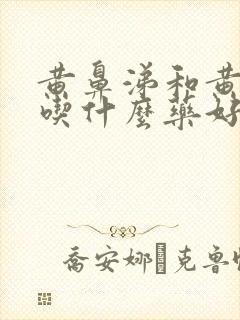 黄鼻涕和黄
喫什麼藥好
喬安娜 克魯